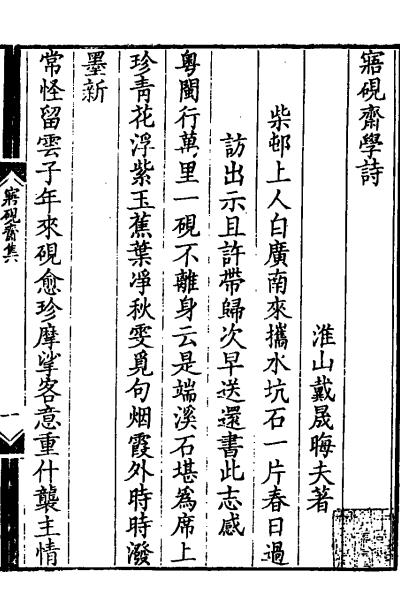 寤硯齋學詩
淮山戴晟晦夫著
柴邨上人白廣南來攜水坑石一片春日過
訪出示且許帶歸次早送還書此志感
粵閩行萬里一硯不離身云是端溪石堪為席上
珍青花浮紫玉蕉葉凈秋雯覓句烟霞外時時潑
墨新
常怪留雲子年來硯愈珍摩挲客意重什襲主情
寤硯齋集
一